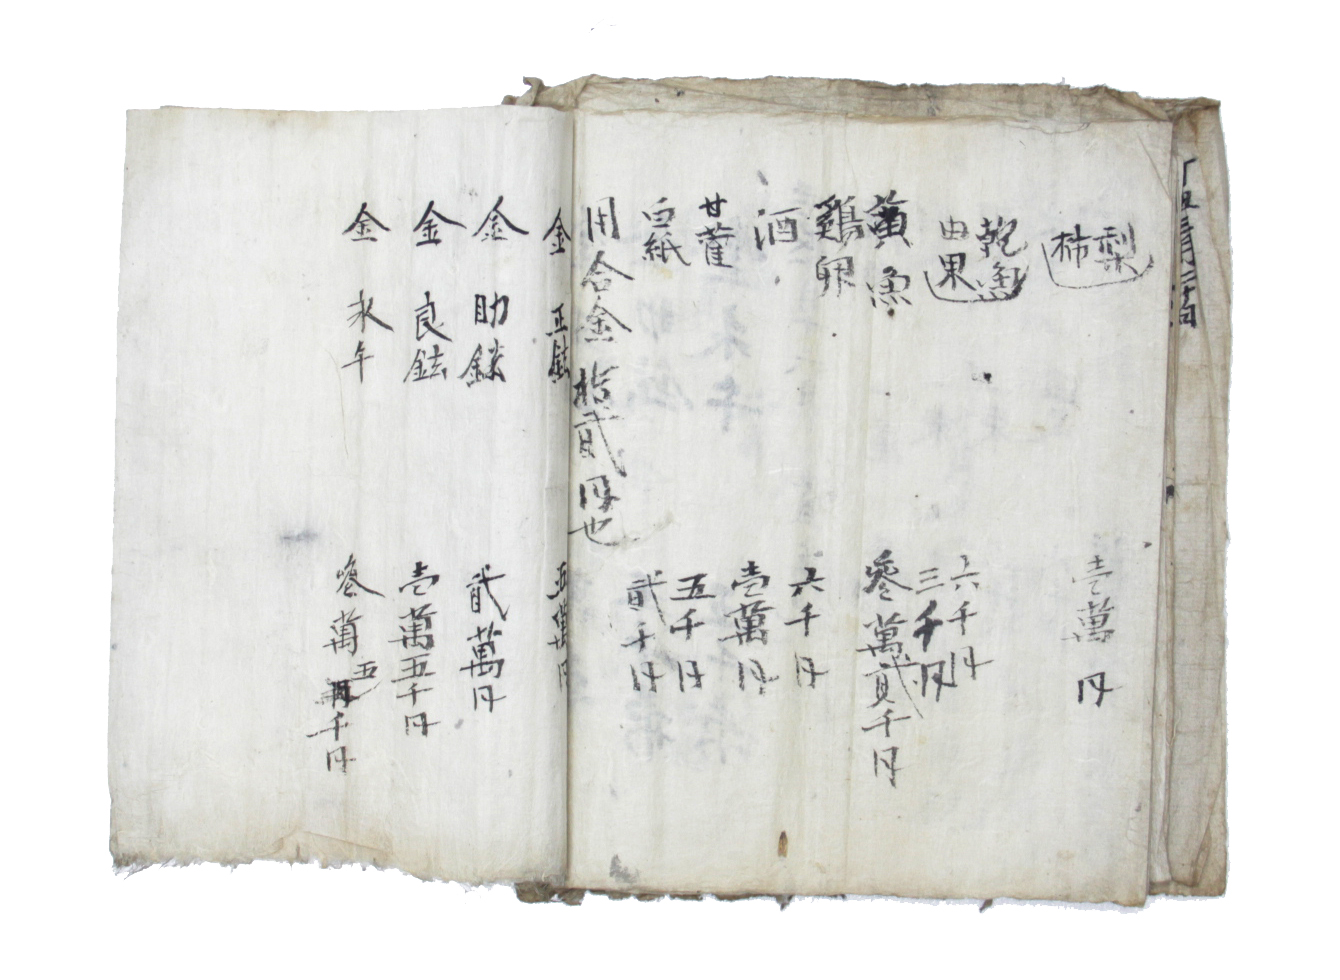 梨
柿
壱萬円
乾魚
由果
六千円
三千円
黃魚
参萬貳千円
鷄卵
六千円
酒
壱萬円
甘藿
五千円
白紙
貳千円
用合金拾貳円也
金正鉉
五萬円
金助鎌
貳萬円
金良鉉
壱萬五千円
金永午
参萬五千円